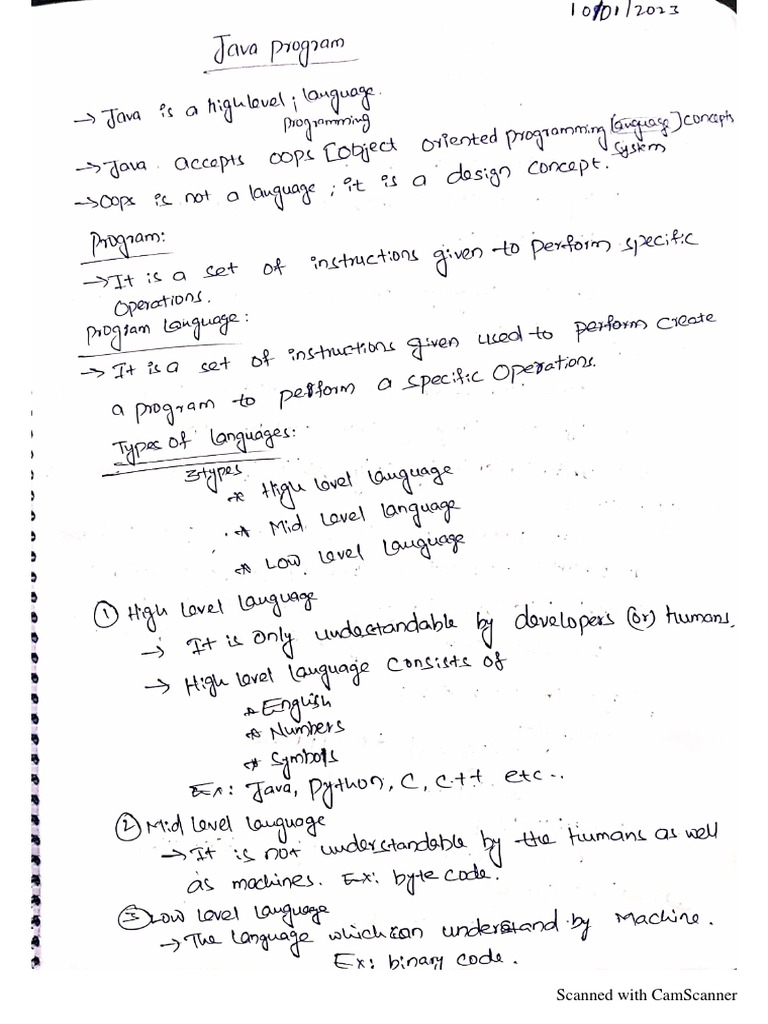 10/01/2023
Java program
→ Java is a high level ; language.
programming
→ Java accepts OOPS [object oriented programming language] concepts
system
→ OOPS is not a language ; it is a design concept.
Program:
→ It is a set of instructions given to perform specific
Operations.
Program Language:
→ It is a set of instructions given used to perform create
a program to perform a specific Operations.
Types of languages:
3types
* High Level language
* Mid Level Language
* Low Level Language
① High Level Language
→ It is only undestandable by developers (or) humans.
→ High Level Language consists of
* English
* Numbers
* Symbols
Ex: Java, Python, C, C++ etc..
② Mid Level Language
→ It is not understandable by the humans as well
as machines. Ex: byte code.
③ Low Level Language
→ The Language which can understand by Machine.
Ex: binary code.
Scanned with CamScanner